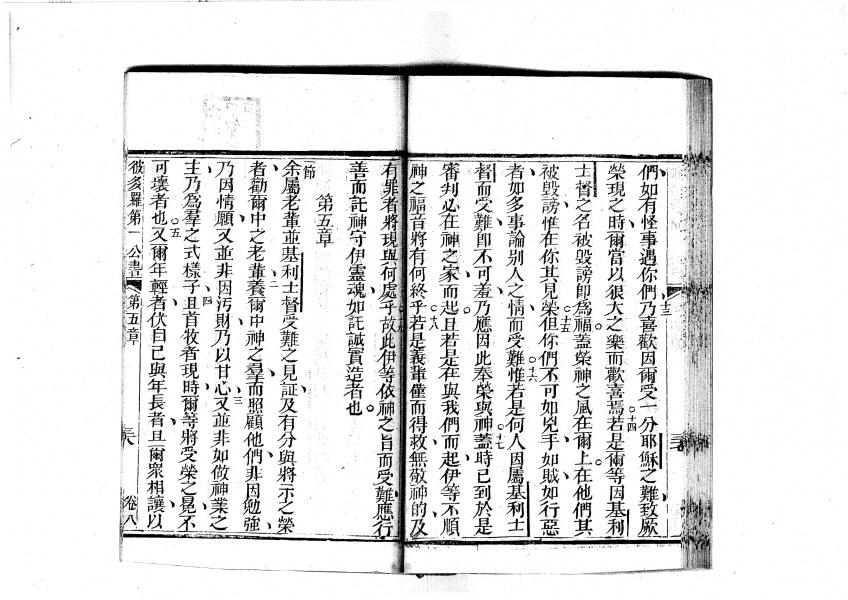 們如有怪事遇你們乃喜歡因爾受一分耶穌之難致厥
十三
榮現之時爾當以很大之樂而歡喜焉若是爾等因基利
十四
士督之名被毀謗即為福蓋榮神之風在爾上在他們其
被毀謗惟在你其見榮但你們不可如兇手如賊如行惡
十五
者如多事論別人之情而受難惟若是何人因屬基利士
十六
督而受難即不可羞乃應因此奉榮與神蓋時已到於是
十七
審判必在神之家而起且若是在與我們而起伊等不順
神之福音將有何終乎若是義輩僅而得救無敬神的及
十八
有罪者將現與何處乎故此伊等依神之旨而受難應行
十九
善而託神守伊靈魂如託誠實造者也
第五章
一節
余屬老輩並基利士督受難之見証及有分與將示之榮
者勸爾中之老輩養爾中神之羣而照顧他們非因勉強
二
乃因情願又並非因汚財乃以甘心又並非如做神業之
三
主乃為羣之式樣子且首牧者現時爾等將受榮之冕不
四
可壞者也又爾年輕者伏自己與年長者且爾眾相讓以
五
彼多羅第一公書
第五章
卷八